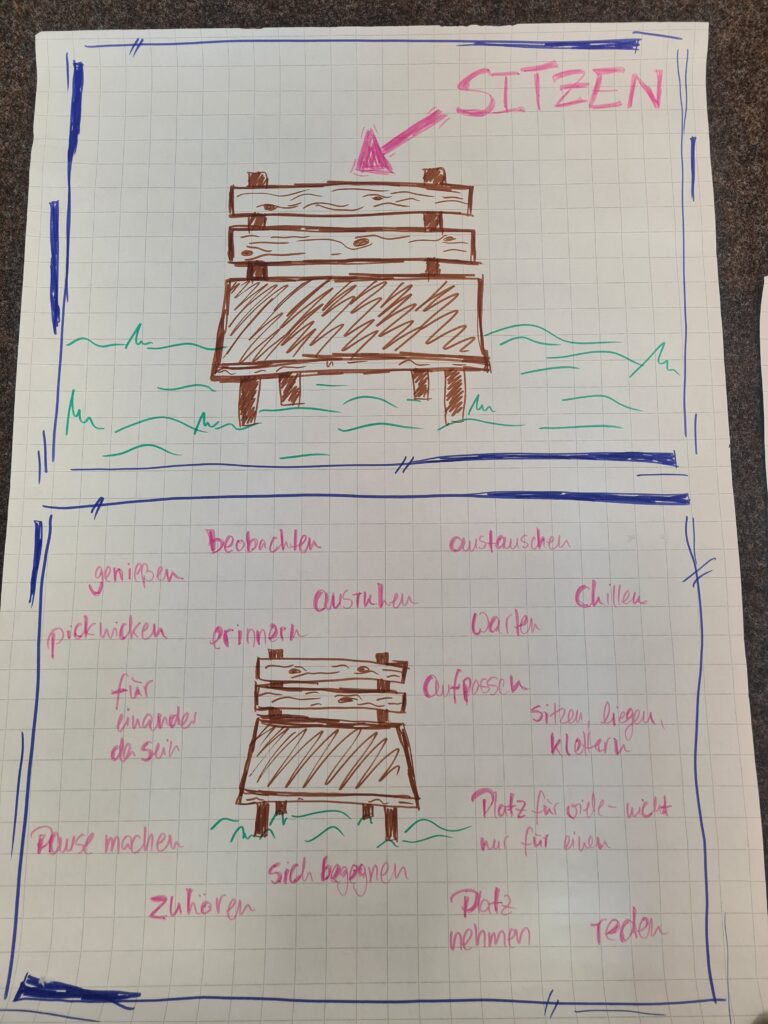 SITZEN
beobachten
austauschen
genießen
ausruhen
chillen
picknicken
erinnern
warten
für
einander
da sein
aufpassen
sitzen, liegen,
klettern
Platz für viele - nicht
nur für einen
Pause machen
sich begegnen
zuhören
Platz
nehmen
reden